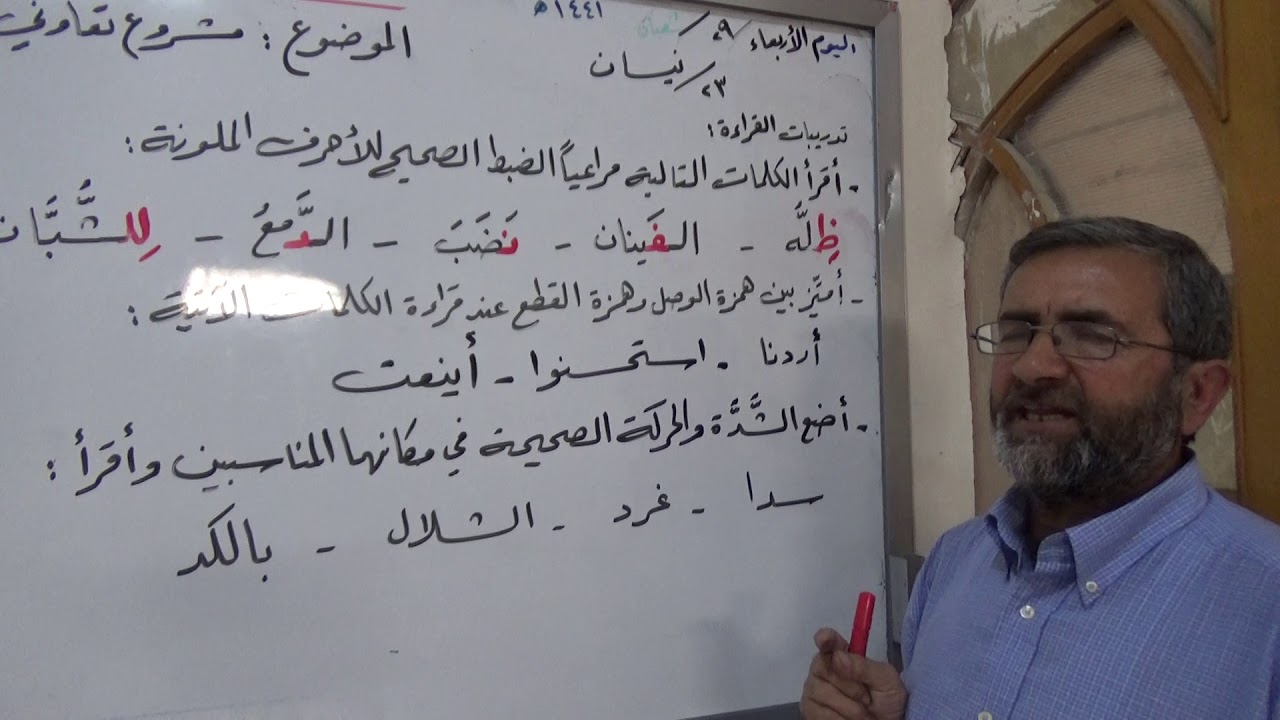 ١٤٤١هـ
اليوم الأربعاء ٢٩/ شعبان
٢٣/ نيسان
الموضوع : مشروع تعاوني
تدريبات القراءة :
- أقرأ الكلمات التالية مراعياً الضبط الصحيح للأحرف الملونة :
ظِلَّه - الفَينان - نَضَبَ - الدَّمعُ - لِلشُّبَّان
- أميّز بين همزة الوصل وهمزة القطع عند قراءة الكلمات الآتية :
أردنا - استحسنوا - أينعت
- أضع الشَّدَّة والحركة الصحيحة في مكانها المناسبين وأقرأ :
سدا - غرد - الشلال - بالكد